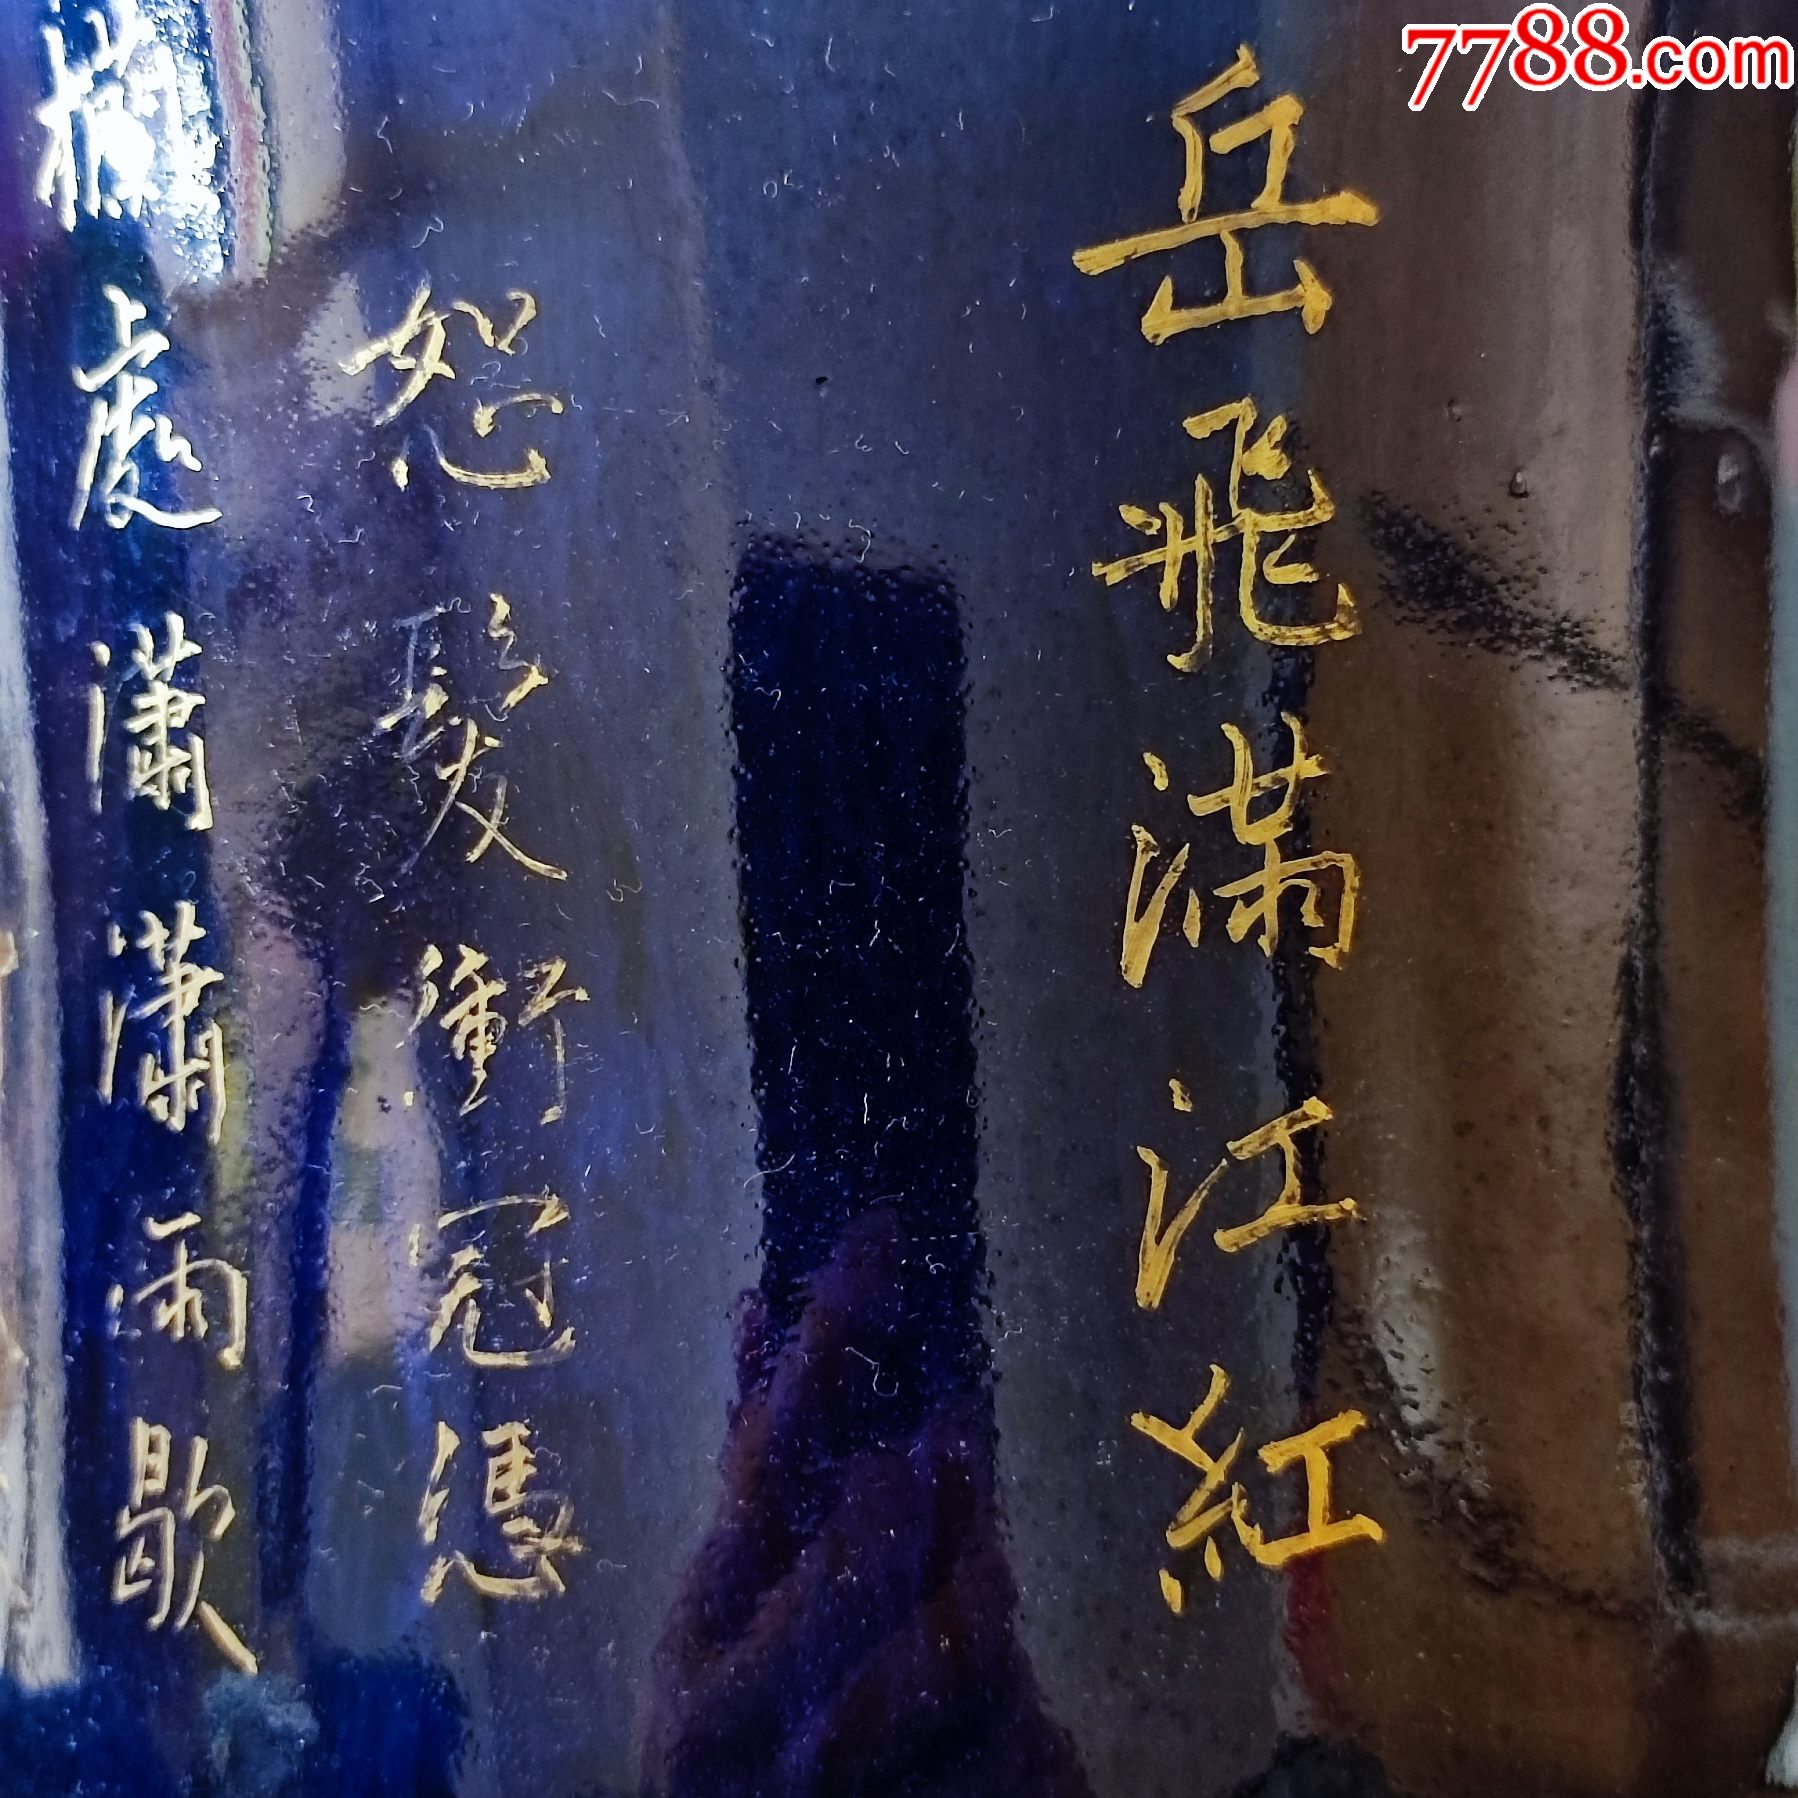 7788.com
岳飛滿江紅
怒髮衝冠憑
欄處瀟瀟雨歇